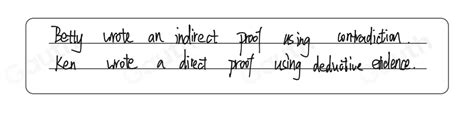 Betty wrote an indirect proof using contradiction.
Ken wrote a direct proof using deductive evidence.